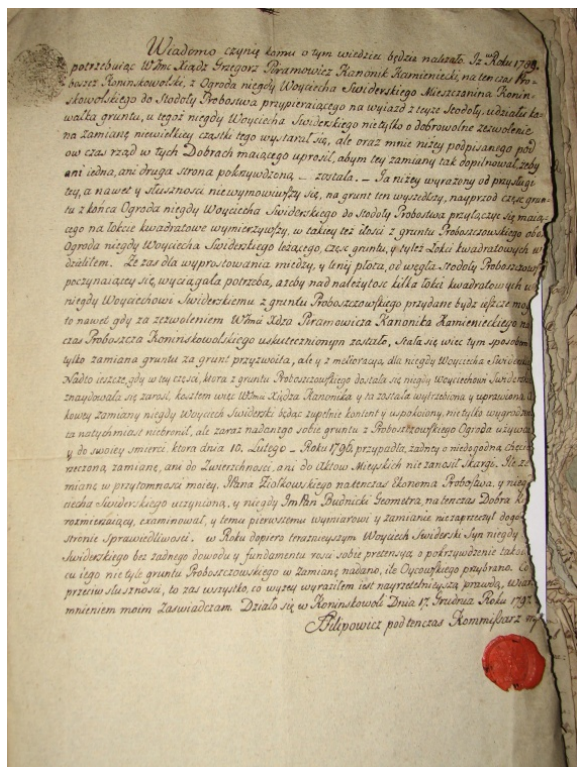 Wiadomo czynię komu o tym wiedzieć będzie należało. Iż Roku 1789
potrzebuiąc Wżmć Xiądz Grzegorz Piramowicz Kanonik Kamieniecki, na ten czas Pro-
boszcz Koninskowolski, z Ogroda niegdy Woyciecha Swiderskiego Mieszczanina Konin-
skowolskiego do Stodoły Probostwa przypieraiącego na wyiazd z teyże Stodoły, udziału ka-
wałka gruntu, u tegoż niegdy Woyciecha Swiderskiego nietylko o dobrowolne zezwolenie
na zamianę niewielkiey cząstki tego wystarał się, ale oraz mnie niżey podpisanego pod
ow czas rząd w tych Dobrach maiącego uprosił, abym tey zamiany tak dopilnował, żeby
ani iedna, ani druga strona pokrzywdzoną _ została. _ Ja niżey wyrażony od przysługi
tey, a nawet y słuszności niewymowiwszy się, na grunt ten wyszedłszy, nayprzod część grun-
tu z końca Ogroda niegdy Woyciecha Swiderskiego do Stodoły Probostwa przyłączyć się maiące-
go na łokcie kwadratowe wymierzywszy, w takiey też ilości z gruntu Proboszczowskiego obok
Ogroda niegdy Woyciecha Swiderskiego leżącego, część gruntu, tyleż Łokci kwadratowych w
dzieliłem. Że zas dla wyprostowania miedzy, y lenij płota, od węgła stodoły Proboszczow
poczynaiącey się, wyciągała potrzeba, ażeby nad należytosć kilka łokci kwadratowych
niegdy Woyciechowi Swiderskiemu z gruntu Proboszczowskiego przydane bydź ieszcze mog
to nawet gdy za zezwoleniem Wżmci Xdza Piramowicza Kanonika Kamienieckiego na
czas Proboszcza Koninskowolskiego uskutecznionym zostało, stała się więc tym sposobem
tylko zamiana gruntu za grunt przyzwoita, ale y z melioracyą dla niegdy Woyciecha Swiderskie
Nadto ieszcze, gdy w tey części, ktora z gruntu Proboszczowskiego dostała się niegdy Woyciechowi Swiderskie
znaydowała się zarosl, kosztem więc Wżmci Xiędza Kanonika y ta została wytrzebiona y uprawiona,
kowey zamiany niegdy Woyciech Swiderski będąc zupełnie kontent y uspokoiony, nietylko wygrodze
za natychmiast niebronił, ale zaraz nadanego sobie gruntu z Proboszczowskiego Ogroda używa
y do swoiey smierci, ktora dnia 10. Lutego _ Roku 1796 przypadła, żadney o niedogodną
nieczoną zamianę, ani do Zwierzchności, ani do Aktow Mieyskich nie zanosił Skargi. Ile że
mianę w przytomności moiey, JPana Ziołkowskiego na ten czas Ekonoma Probostwa, y nieg
ciecha Swiderskiego uczynioną, y niegdy Jm Pan Budnicki Geometra, na ten czas Dobra
rozmierzaiący, examinował, y temu pierwszemu wymiarowi y zamianie niezaprzeczył dogo
stronie Sprawiedliwości. w Roku dopiero teraznieyszym Woyciech Swiderski Syn niegdy
Swiderskiego bez żadnego dowodu y fundamentu rości sobie pretensyą, o pokrzywdzenie takow
cu iego nie tyle gruntu Proboszczowskiego w Zamianę nadano, ile Oycowskiego przybrano. Co
przeciw słuszności, to zas wszystko, co wyżey wyraziłem iest nayrzetelnieyszą prawdą, własno
mnieniem moim zaswiadczam. Działo się w Koninskowoli Dnia 17. Grudnia Roku 1797
Filipowicz pod ten czas Kommissarz